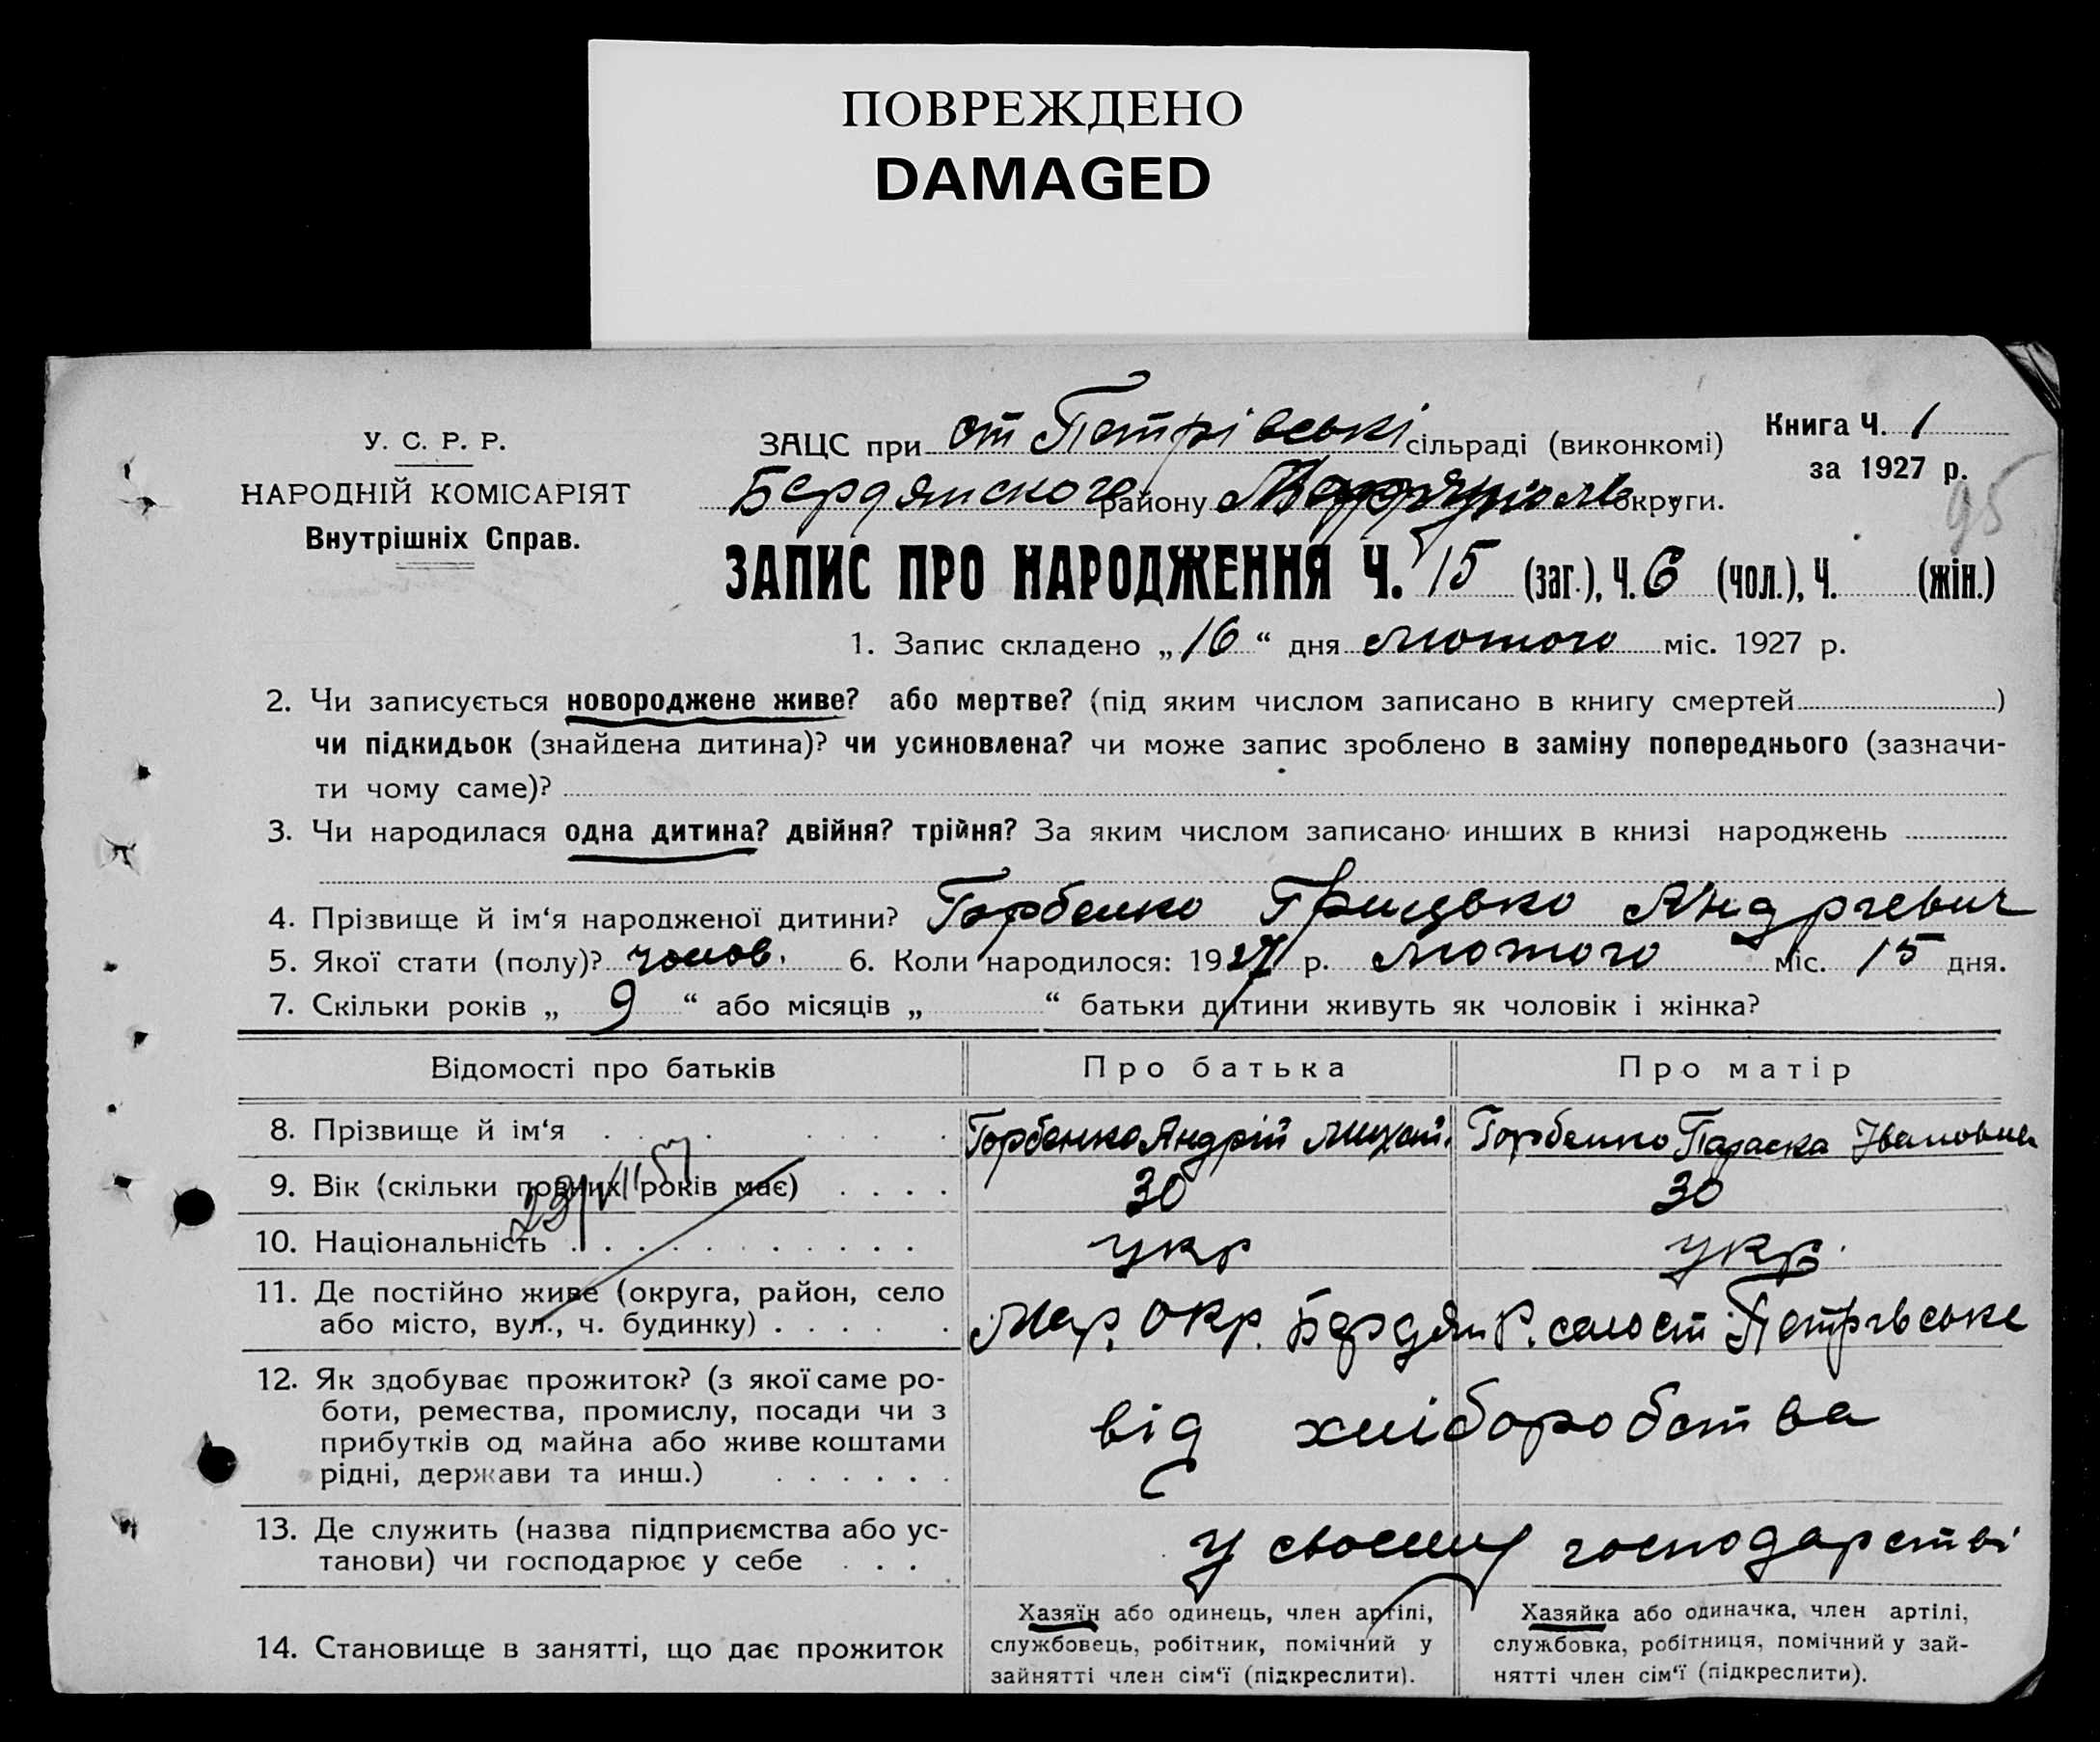 ПОВРЕЖДЕНО
DAMAGED
У. С. Р. Р.
НАРОДНІЙ КОМІСАРІЯТ
Внутрішніх Справ.
ЗАЦС при ст Петрівські сільраді (виконкомі)
Бердянского району округи.
Книга Ч. 1
за 1927 р.
95
ЗАПИС ПРО НАРОДЖЕННЯ Ч. 15 (заг.), Ч. 6 (чол.), Ч. (жін.)
1. Запис складено „16“ дня лютого міс. 1927 р.
2. Чи записується новороджене живе? або мертве? (під яким числом записано в книгу смертей)
чи підкидьок (знайдена дитина)? чи усиновлена? чи може запис зроблено в заміну попереднього (зазначи-
ти чому саме)?
3. Чи народилася одна дитина? двійня? трійня? За яким числом записано инших в книзі народжень
4. Прізвище й ім‘я народженої дитини? Горбенко Грицько Андрієвич
5. Якої стати (полу)? чолов. 6. Коли народилося: 1927 р. лютого міс. 15 дня.
7. Скільки років „ 9 “ або місяців „ “ батьки дитини живуть як чоловік і жінка?
Відомості про батьків Про батька Про матір
8. Прізвище й ім‘я Горбенко Андрій Михай. Горбенко Параска Івановна
9. Вік (скільки повних років має) 30 30
10. Національність укр укр.
11. Де постійно живе (округа, район, село
або місто, вул., ч. будинку) Мар. Окр. Бердян Р. село ст Петрівське
12. Як здобуває прожиток? (з якої саме ро-
боти, ремества, промислу, посади чи з
прибутків од майна або живе коштами
рідні, держави та инш.) від хліборобства
13. Де служить (назва підприємства або ус-
танови) чи господарює у себе у своєму господарстві
14. Становище в занятті, що дає прожиток
Хазяїн або одинець, член артілі,
службовець, робітник, помічний у
зайнятті член сім‘ї (підкреслити).
Хазяйка або одиначка, член артілі,
службовка, робітниця, помічний у зай-
нятті член сім‘ї (підкреслити).